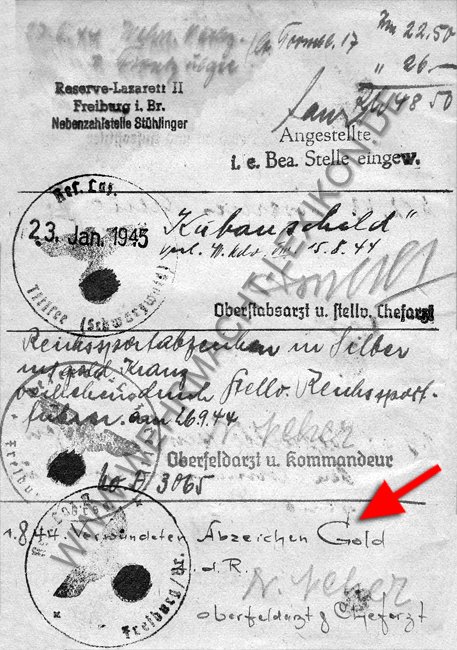 Gormbl. 17
Rm 22,50
" 26.—
Rm 48 50
Reserve-Lazarett II
Freiburg i. Br.
Nebenzahlstelle Stühlinger
Angestellte
i. e. Bea. Stelle eingew.
Res. Laz.
23. Jan. 1945
Titisee (Schwarzwald)
"Kubanschild"
15.8.44
Oberstabsarzt u. stellv. Chefarzt
Reichssportabzeichen in Silber
mit gold. Kranz
verliehen durch Stellv. Reichssport-
führer am 26.9.44
Oberfeldarzt u. Kommandeur
No D 3065
1.8.44. Verwundeten Abzeichen Gold
d.R.
Oberfeldarzt & Chefarzt
Freiburg/Br.
WWW.WEHRMACHT-LEXIKON.DE